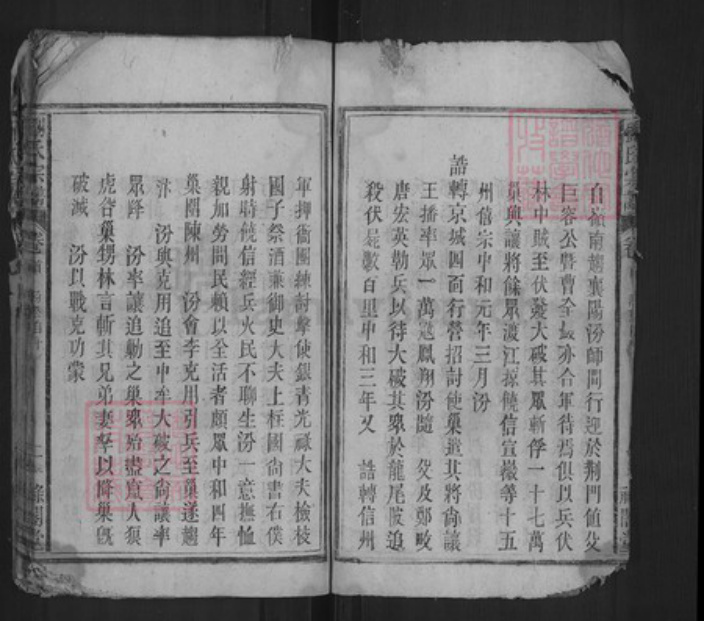 自嶺南趨襄陽汾師間行迎於荆門值父
巨容公暨曹全晸亦合軍待焉俱以兵伏
林中賊至伏發大破其眾斬俘一十七萬
巢與讓將餘眾渡江掠饒信宣徽等十五
州僖宗中和元年三月汾
誥轉京城四面行營招討使巢遣其將尙讓
王播率眾一萬寇鳳翔汾隨 父及鄭畋
唐宏英勒兵以待大破其眾於龍尾陂追
殺伏屍數百里中和三年又 誥轉信州
軍押衙團練討擊使銀青光祿大夫檢校
國子祭酒兼御史大夫上柱國尙書右僕
射時饒信經兵火民不聊生汾一意撫恤
親加勞問民賴以全活者頗眾中和四年
巢圍陳州 汾會李克用引兵至巢遂趨
汴 汾與克用追至中牟大破之尙讓率
眾降 汾率讓追勦之巢眾殆盡竄入狼
虎谷巢甥林言斬其兄弟妻孥以降巢旣
破滅 汾以戰克功蒙